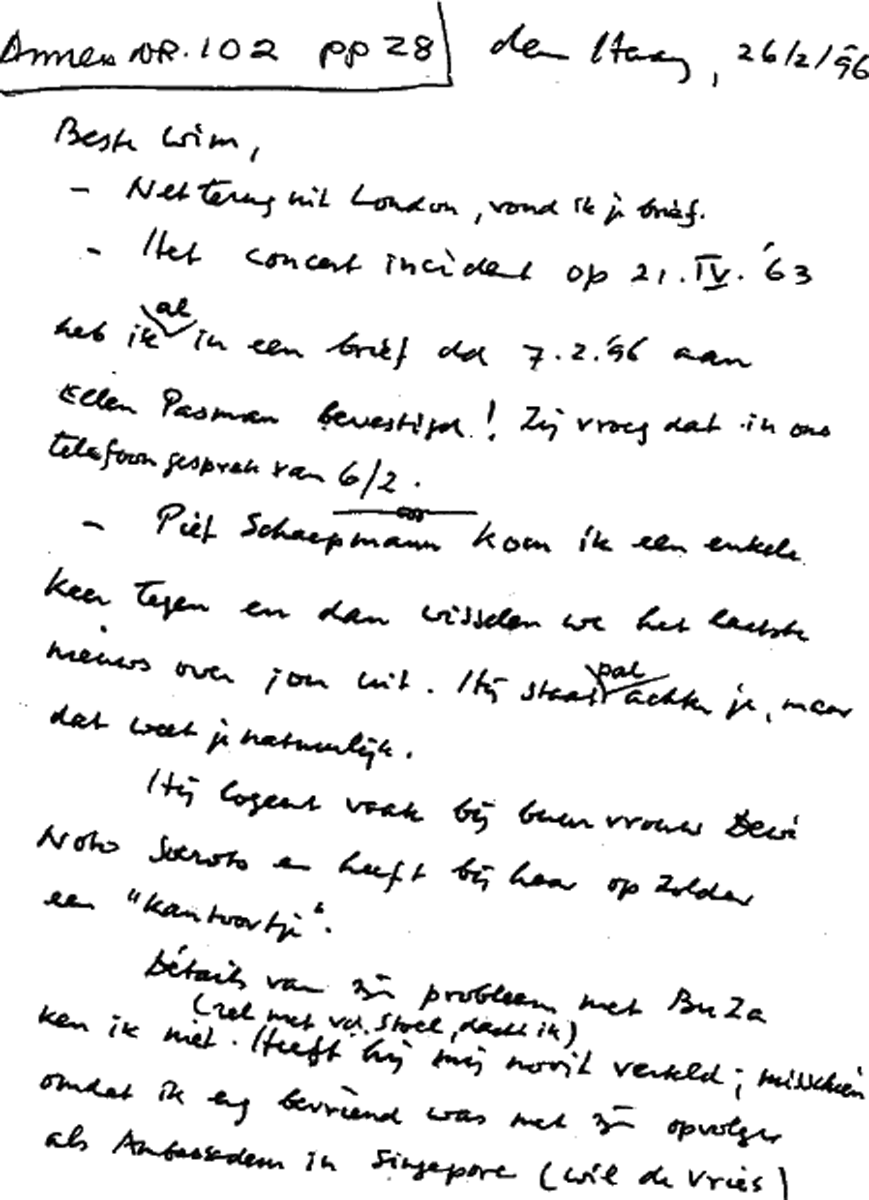 Annex NR. 102 pp 28 den Haag, 26/2/'96
Beste Wim,
- Net terug uit London, vond ik je brief.
- Het concert incident op 21. IV. '63
heb ik al in een brief dd 7.2.'96 aan
Ellen Pasman bevestigd! Zij vroeg dat in ons
telefoongesprek van 6/2.
- Piet Schaepmann kom ik een enkele
keer tegen en dan wisselen we het laatste
nieuws over jou uit. Hij staat pal achter je, maar
dat weet je natuurlijk.
Hij logeert vaak bij buurvrouw Dewi
Noto Soeroto en heeft bij haar op zolder
een "kantoortje".
Détails van zijn probleem met BuZa
(zat met vd. Stoel, dacht ik)
ken ik niet. Heeft hij mij nooit verteld; misschien
omdat ik erg bevriend was met zijn opvolger
als Ambassadeur in Singapore (Wil de Vries)